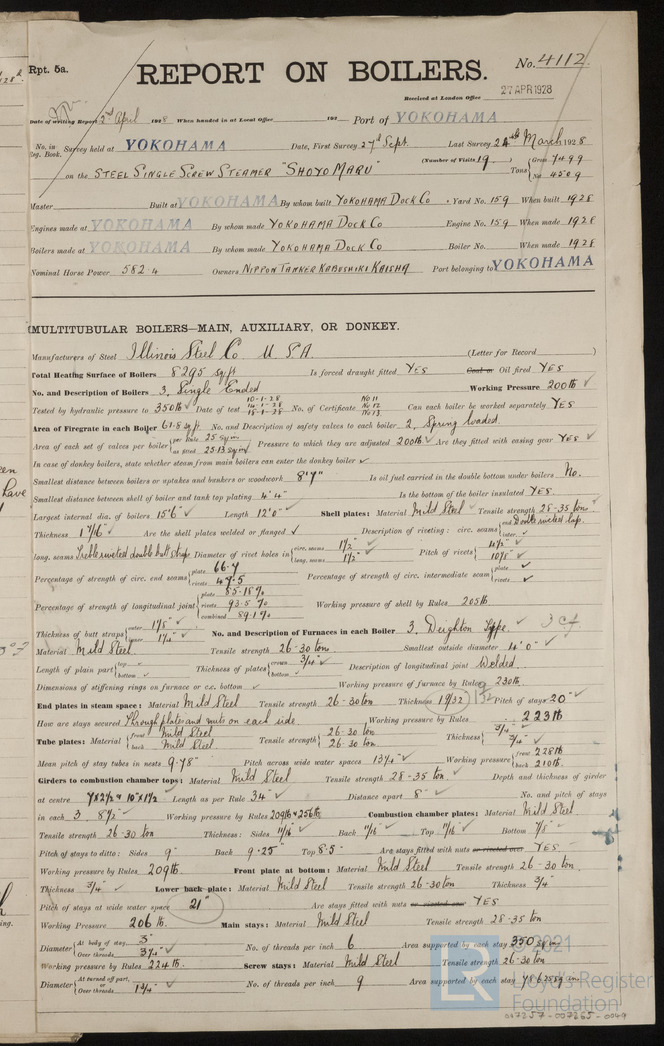 Rpt. 5a.
No. 4112
REPORT ON BOILERS.
Received at London Office 27 APR 1928
Date of writing Report 2nd April 1928 When handed in at Local Office 192 Port of YOKOHAMA
No. in Reg. Book. Survey held at YOKOHAMA Date, First Survey 27th Sept. Last Survey 24th March 1928
(Number of Visits 19)
on the STEEL SINGLE SCREW STEAMER "SHOYO MARU" Tons Gross 7499 Net 4509
Master Built at YOKOHAMA By whom built YOKOHAMA DOCK Co Yard No. 159 When built 1928
Engines made at YOKOHAMA By whom made YOKOHAMA DOCK Co Engine No. 159 When made 1928
Boilers made at YOKOHAMA By whom made YOKOHAMA DOCK Co Boiler No. When made 1928
Nominal Horse Power 582.4 Owners NIPPON TANKER KABUSHIKI KAISHA Port belonging to YOKOHAMA
MULTITUBULAR BOILERS—MAIN, AUXILIARY, OR DONKEY.
Manufacturers of Steel Illinois Steel Co U.S.A. (Letter for Record )
Total Heating Surface of Boilers 8295 sq ft Is forced draught fitted YES Coal or Oil fired YES
No. and Description of Boilers 3, Single Ended Working Pressure 200 lb
Tested by hydraulic pressure to 350 lb Date of test 10-1-28 14-1-28 18-1-28 No. of Certificate No 11 No 12 No 13 Can each boiler be worked separately YES
Area of Firegrate in each Boiler 61.8 sq ft No. and Description of safety valves to each boiler 2, Spring loaded.
Area of each set of valves per boiler per Rule 25 sq in as fitted 25.13 sq in Pressure to which they are adjusted 200 lb Are they fitted with easing gear YES
In case of donkey boilers, state whether steam from main boilers can enter the donkey boiler
Smallest distance between boilers or uptakes and bunkers or woodwork 8'4" Is oil fuel carried in the double bottom under boilers No.
Smallest distance between shell of boiler and tank top plating 4'4" Is the bottom of the boiler insulated YES
Largest internal dia. of boilers 15'6" Length 12'0" Shell plates: Material Mild Steel Tensile strength 28-35 ton
Thickness 1 7/16" Are the shell plates welded or flanged Description of riveting: circ. seams end Double riveted lap. inter.
long. seams Treble riveted double butt strap Diameter of rivet holes in circ. seams 1 1/2" long. seams 1 1/2" Pitch of rivets 4 1/2" 10 1/8"
Percentage of strength of circ. end seams plate 66.7 rivets 47.5 Percentage of strength of circ. intermediate seam plate rivets
Percentage of strength of longitudinal joint plate 85.18% rivets 93.5% combined 89.1% Working pressure of shell by Rules 205 lb
Thickness of butt straps outer 1 1/8" inner 1 1/4" No. and Description of Furnaces in each Boiler 3, Deighton Type.
Material Mild Steel Tensile strength 26-30 ton Smallest outside diameter 4'0"
Length of plain part top bottom Thickness of plates crown 3/4" bottom Description of longitudinal joint Welded.
Dimensions of stiffening rings on furnace or c.c. bottom Working pressure of furnace by Rules 230 lb
End plates in steam space: Material Mild Steel Tensile strength 26-30 ton Thickness 1 9/32 Pitch of stays 20"
How are stays secured Through plates and nuts on each side. Working pressure by Rules 223 lb
Tube plates: Material front Mild Steel back Mild Steel Tensile strength 26-30 ton 26-30 ton Thickness 3/4" 3/4"
Mean pitch of stay tubes in nests 9.78" Pitch across wide water spaces 13 3/4" Working pressure front 228 lb back 210 lb
Girders to combustion chamber tops: Material Mild Steel Tensile strength 28-35 ton Depth and thickness of girder
at centre Length as per Rule 34" Distance apart 8" No. and pitch of stays
in each 3, 8 1/2" Working pressure by Rules 209 lb & 256 lb Combustion chamber plates: Material Mild Steel
Tensile strength 26-30 ton Thickness: Sides 11/16" Back 11/16" Top 11/16" Bottom 7/8"
Pitch of stays to ditto: Sides 9" Back 9.25" Top 8.5" Are stays fitted with nuts or riveted over YES
Working pressure by Rules 209 lb Front plate at bottom: Material Mild Steel Tensile strength 26-30 ton
Thickness 3/4" Lower back plate: Material Mild Steel Tensile strength 26-30 ton Thickness 3/4"
Pitch of stays at wide water space 21" Are stays fitted with nuts or riveted over YES
Working Pressure 206 lb. Main stays: Material Mild Steel Tensile strength 28-35 ton
Diameter At body of stay, 3" or Over threads 3 1/4" No. of threads per inch 6 Area supported by each stay 350 sq in
Working pressure by Rules 224 lb. Screw stays: Material Mild Steel Tensile strength 26-30 ton
Diameter At turned off part, or Over threads 1 3/4" No. of threads per inch 9 Area supported by each stay
© 2021
Lloyd's Register
Foundation
007257-007265-0049